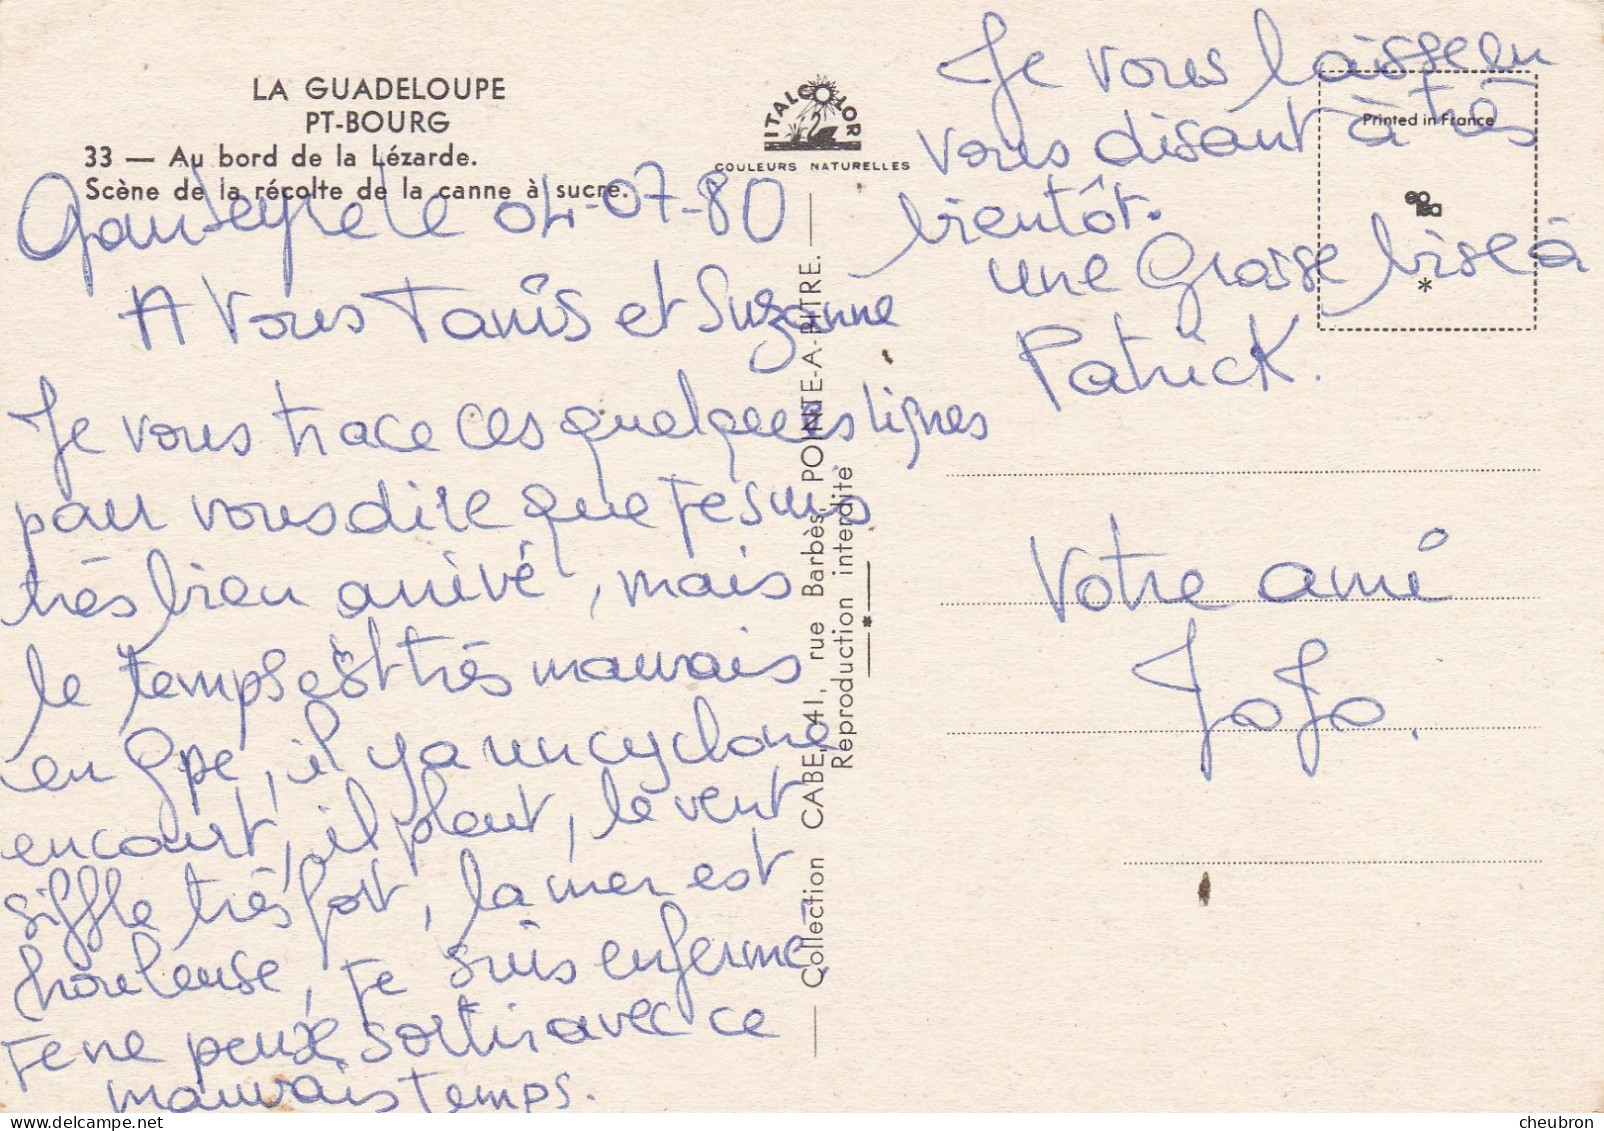 LA GUADELOUPE
PT-BOURG
33 — Au bord de la Lézarde.
Scène de la récolte de la canne à sucre.
ITALCOLOR
COULEURS NATURELLES
le 04-07-80
A vous Tanis et Suzanne
Je vous trace ces quelques lignes
pour vous dire que je suis
très bien arrivé, mais
le temps est très mauvais
en Gpe, il y a un cyclone
encourt, il pleut, le vent
siffle très fort, la mer est
houleuse, je suis enfermé,
je ne peux sortir avec ce
mauvais temps.
Collection CABE, 41, rue Barbès, POINTE-A-PITRE.
Reproduction interdite
Je vous laisse en
vous disant à très
bientôt.
une Graisse bise à
Patrick.
Printed in France
*
Votre ami
JoJo.
cheubron.com